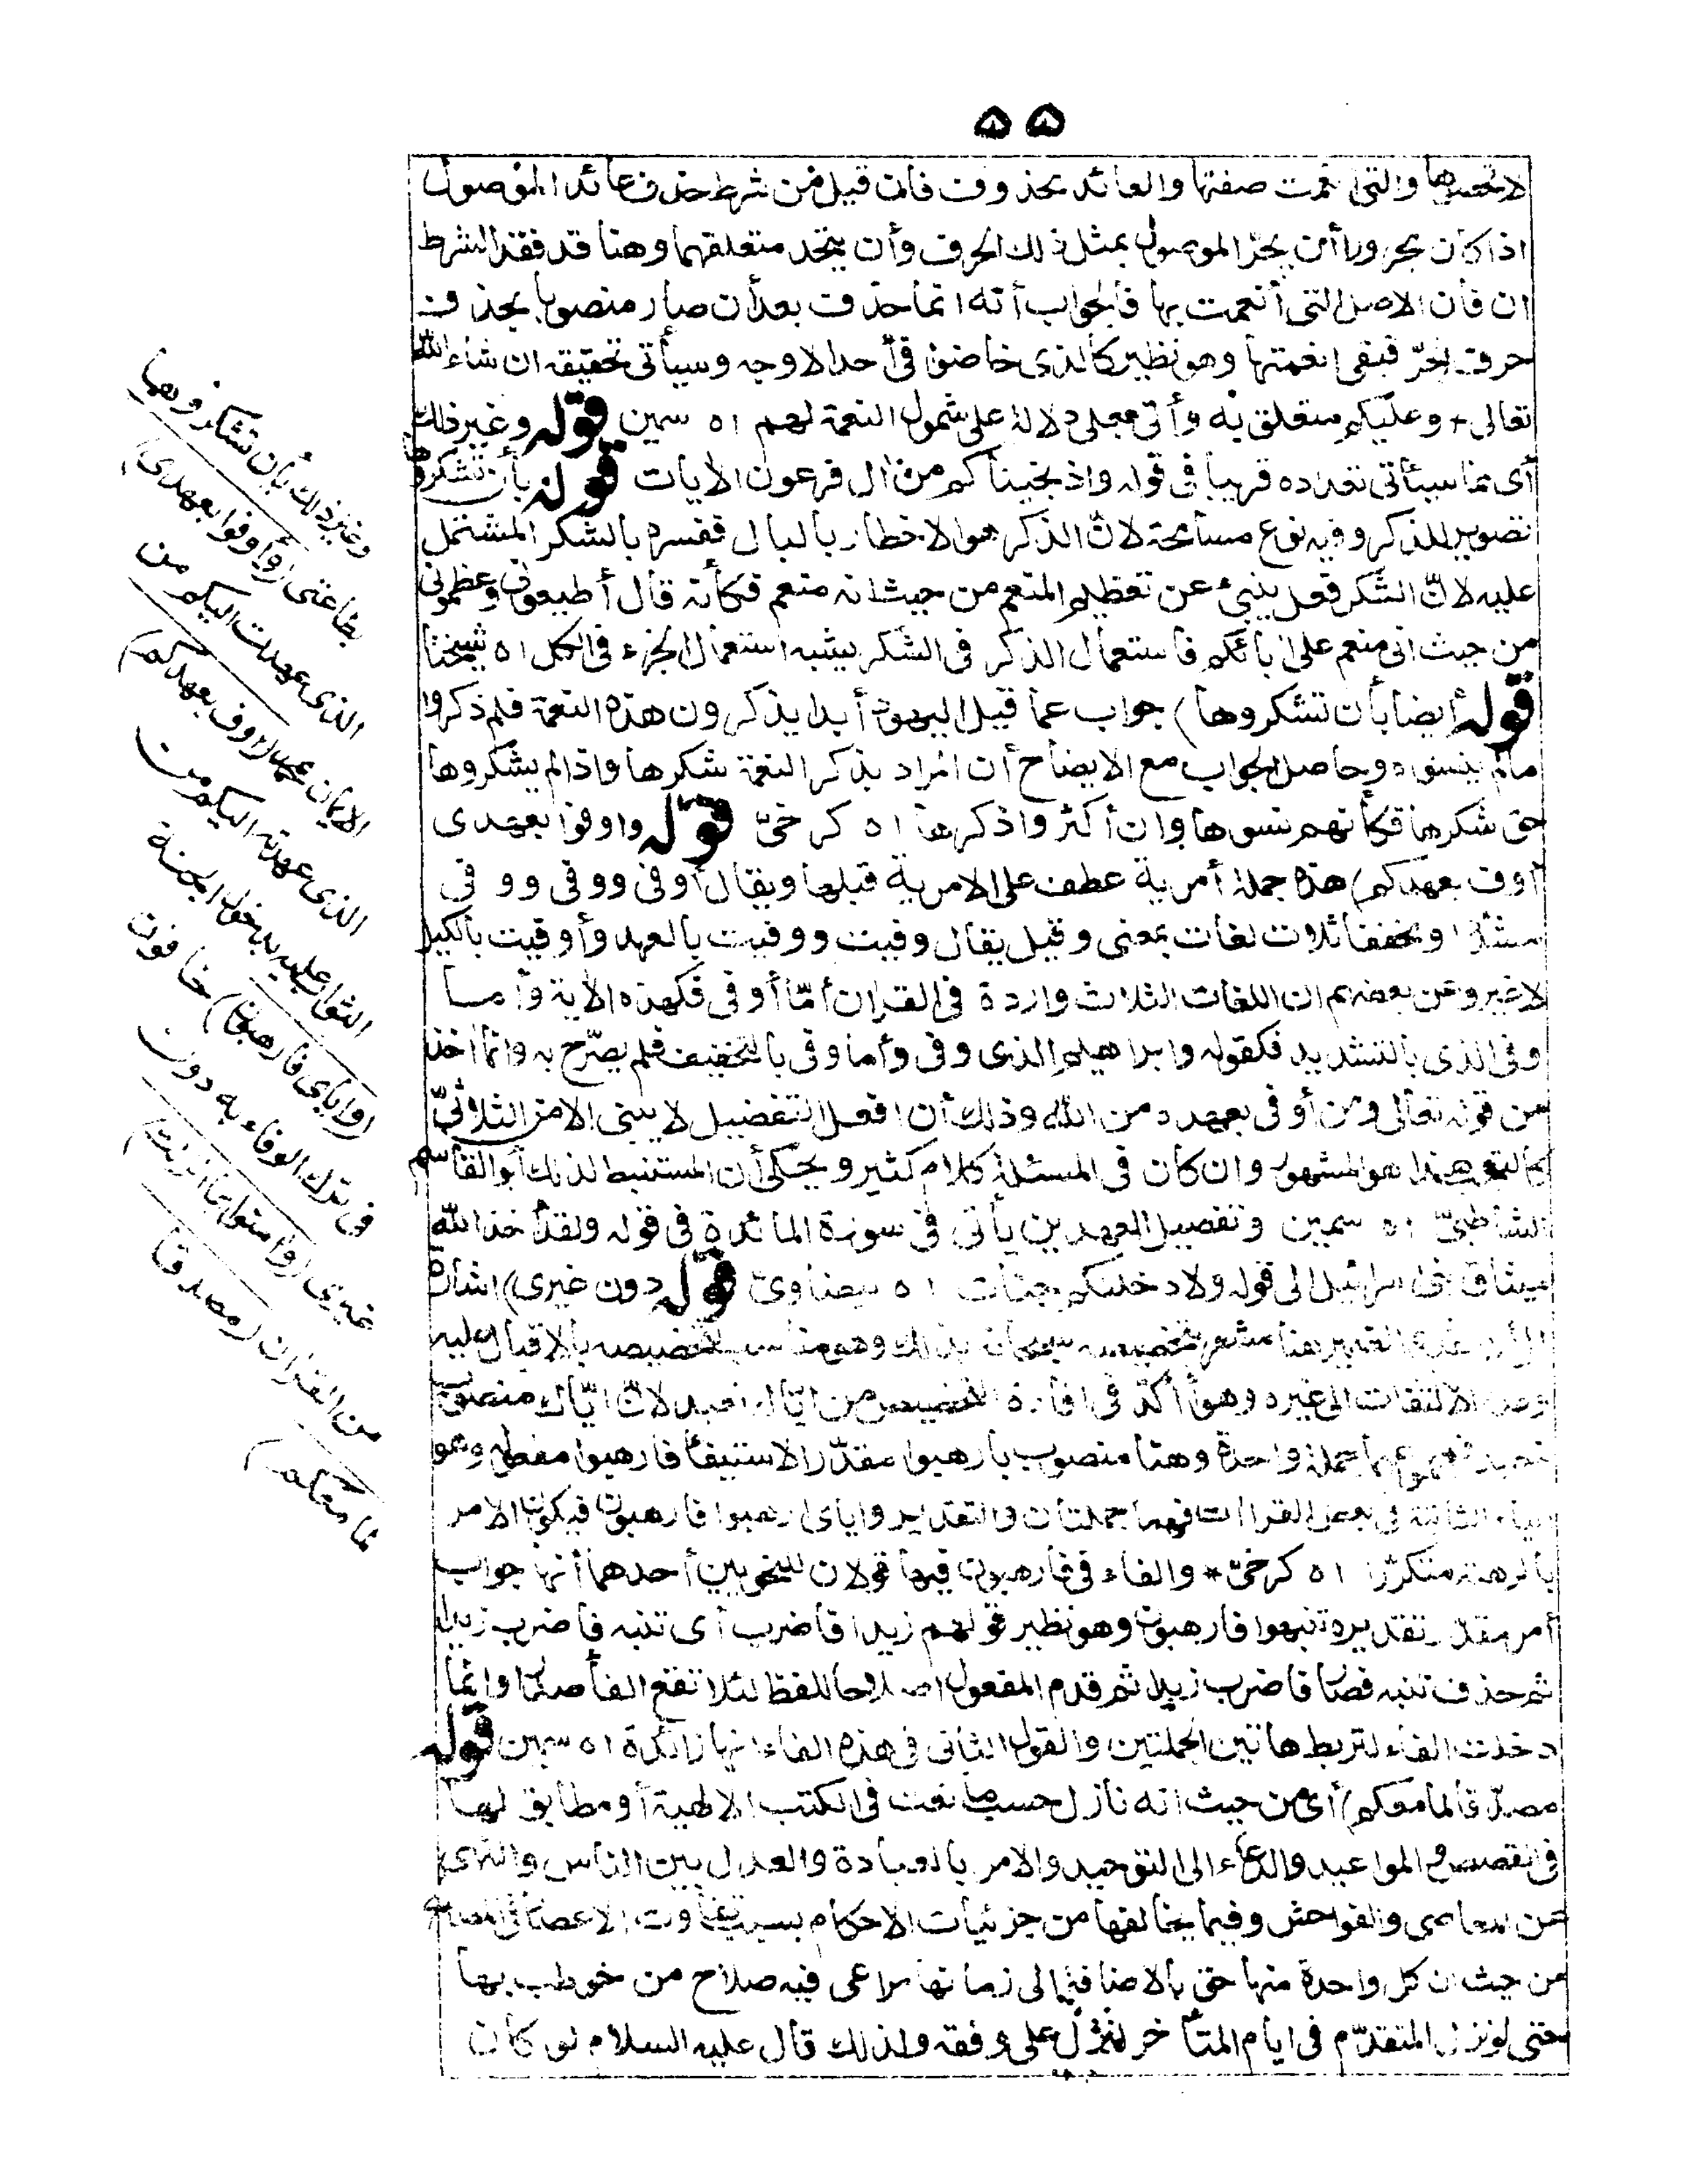 ٥٥
لا تحصوها والتى أنعمت صفتها والعائد محذوف فان قيل من شرط حذف عائد الموصول
اذا كان مجرورا أن يجرّ الموصول بمثل ذلك الحرف وأن يتحد متعلقهما وهنا قد فقد الشرط
ان فان الاصل التى أنعمت بها فالجواب أنه انما حذف بعد أن صار منصوبا بحذف
حرف الجرّ فبقى أنعمتها وهو نظير كالذى خاضوا فى أحد الاوجه وسيأتى تحقيقه ان شاء الله
تعالى وعليكم متعلق به وأتى بعلى دلالة على شمول النعمة لهم اه سمين قوله وغير ذلك
أى مما سيأتى تعداده قريبا فى قوله واذ نجيناكم من ال فرعون الايات قوله بأن تشكروها
تصوير للذكر وفيه نوع مسامحة لانّ الذكر هو الاخطار بالبال ففسره بالشكر المشتمل
عليه لانّ الشكر فعل ينبئ عن تعظيم المنعم من حيث انه منعم فكأنه قال أطيعونى وعظمونى
من حيث انى منعم على ابائكم فاستعمال الذكر فى الشكر يشبه استعمال الجزء فى الكل اه شيخنا
قوله أيضا بأن تشكروها) جواب عما قيل اليهود أبدا يذكرون هذه النعمة فلم ذكروا
مالم ينسوه وحاصل الجواب مع الايضاح أن المراد بذكر النعمة شكرها واذا لم يشكروها
حق شكرها فكأنهم نسوها وان أكثروا ذكرها اه كرخىّ قوله واوفوا بعهدى
أوف بعهدكم) هذه جملة أمرية عطف على الامرية قبلها ويقال أوفى ووفى ووفى
مشدّدا ومخففا ثلاث لغات بمعنى وقيل يقال وفيت ووفيت بالعهد وأوفيت بالكيل
لا غير وعن بعضهم ان اللغات الثلاث واردة فى القران أمّا أوفى فكهذه الاية وأما
وفى الذى بالتشديد فكقوله وابراهيم الذى وفى وأما وفى بالتخفيف فلم يصرّح به وانما أخذ
من قوله تعالى ومن أوفى بعهده من الله وذلك أن افعل التفضيل لا يبنى الا من الثلاثىّ
كالتعجب هذا هو المشهور وان كان فى المسئلة كلام كثير ويحكى أن المستنبط لذلك أبو القاسم
الشاطبىّ اه سمين وتفصيل العهدين يأتى فى سورة المائدة فى قوله ولقد أخذ الله
ميثاق بنى اسرائيل الى قوله ولادخلنكم جنات اه بيضاوىّ قوله دون غيرى) اشارة
الى أن تقديم الضمير هنا مشعر بتخصيصه سبحانه بذلك وهو مناسب لتخصيصه بالاقبال عليه
وعدم الالتفات الى غيره وهو أأكد فى افادة التخصيص من اياك نعبد لانّ ايّاك منصوب
بنعبد فمجموعهما جملة واحدة وهنا منصوب بارهبوا مقدّرا لاستيفاء فارهبوا مفعوله وهو
الياء الثابتة فى بعض القراات فهما جملتان والتقدير واياى ارهبوا فارهبون فيكون الامر
بالرهبة متكررا اه كرخىّ * والفاء فى فارهبون فيها قولان للنحويين أحدهما أنها جواب
أمر مقدّر تقديره تنبهوا فارهبون وهو نظير قولهم زيدا فاضرب أى تنبه فاضرب زيدا
ثم حذف تنبه فصار فاضرب زيدا ثم قدم المفعول اصلاحا للفظ لئلا تقع الفاء صدرا وانما
دخلت الفاء لتربط هاتين الجملتين والقول الثانى فى هذه الفاء انها زائدة اه سمين قوله
مصدّقا لما معكم) أى من حيث انه نازل حسب ما نعت فى الكتب الالهية أو مطابق لها
فى القصص والمواعيد والدعاء الى التوحيد والامر بالعبادة والعدل بين الناس والنهى
عن المعاصى والفواحش وفيما يخالفها من جزئيات الاحكام بسبب تفاوت الاعصار فى المصالح
من حيث ان كل واحدة منها حق بالاضافة الى زمانها مراعى فيه صلاح من خوطب بها
حتى لو نزل المتقدّم فى ايام المتأخر لنزل على وفقه ولذلك قال عليه السلام لو كان
وغير ذلك بأن تشكروها
بطاعتى (وأوفوا بعهدى)
الذى عهدت اليكم من
الايمان بمحمد (أوف بعهدكم)
الذى عهدته اليكم من
الثواب عليه بدخول الجنة
(واياى فارهبون) خافون
فى ترك الوفاء به دون
غيرى (وامنوا بما أنزلت)
من القران (مصدقا
لما معكم)